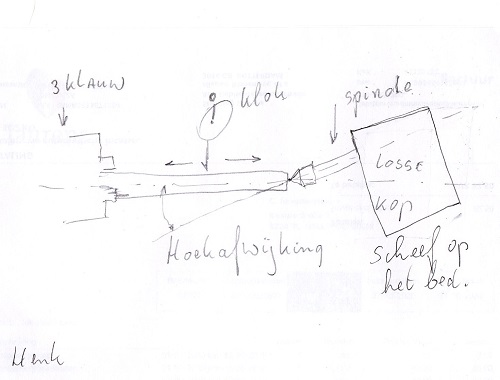 3 KLAUW
Klok
spindle
LOSSE
KOP
Hoekafwijking
Scheef op
het bed.
Henk